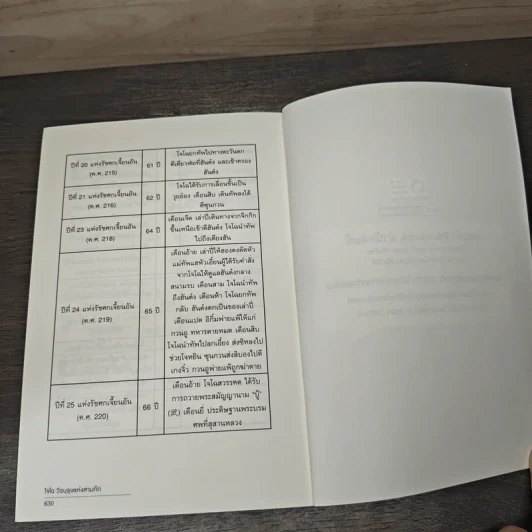 ปีที่ 20 แห่งรัชศกเจี้ยนอัน
(ค.ศ. 215)
61 ปี
โจโฉยกทัพไปทางตะวันตก
ตีเตียวฬ่อที่ฮันต๋ง และเข้าครอง
ฮันต๋ง
ปีที่ 21 แห่งรัชศกเจี้ยนอัน
(ค.ศ. 216)
62 ปี
โจโฉได้รับการเลื่อนขั้นเป็น
วุยอ๋อง เดือนสิบ เดินทัพลงใต้
ตีซุนกวน
ปีที่ 23 แห่งรัชศกเจี้ยนอัน
(ค.ศ. 218)
64 ปี
เดือนเจ็ด เล่าปี่เดินทางจากจ๊กก๊ก
ขึ้นเหนือเข้าตีฮันต๋ง โจโฉนำทัพ
ไปถึงเตียงฮัน
ปีที่ 24 แห่งรัชศกเจี้ยนอัน
(ค.ศ. 219)
65 ปี
เดือนอ้าย เล่าปี่ให้ฮองตงตัดหัว
แม่ทัพแฮหัวเอี๋ยนผู้ได้รับคำสั่ง
จากโจโฉให้ดูแลฮันต๋งกลาง
สนามรบ เดือนสาม โจโฉนำทัพ
ถึงฮันต๋ง เดือนห้า โจโฉยกทัพ
กลับ ฮันต๋งตกเป็นของเล่าปี่
เดือนแปด อิกิ๋มพ่ายแพ้ให้แก่
กวนอู ทหารตายหมด เดือนสิบ
โจโฉนำทัพไปลกเอี๋ยง ส่งซิหลงไป
ช่วยโจหยิน ซุนกวนส่งลิบองไปตี
เกงจิ๋ว กวนอูพ่ายแพ้ถูกฆ่าตาย
ปีที่ 25 แห่งรัชศกเจี้ยนอัน
(ค.ศ. 220)
66 ปี
เดือนอ้าย โจโฉสวรรคต ได้รับ
การถวายพระสมัญญานาม "บู๊"
(武) เดือนยี่ ประดิษฐานพระบรม
ศพที่สุสานหลวง
โจโฉ วีรบุรุษแห่งสามก๊ก
630